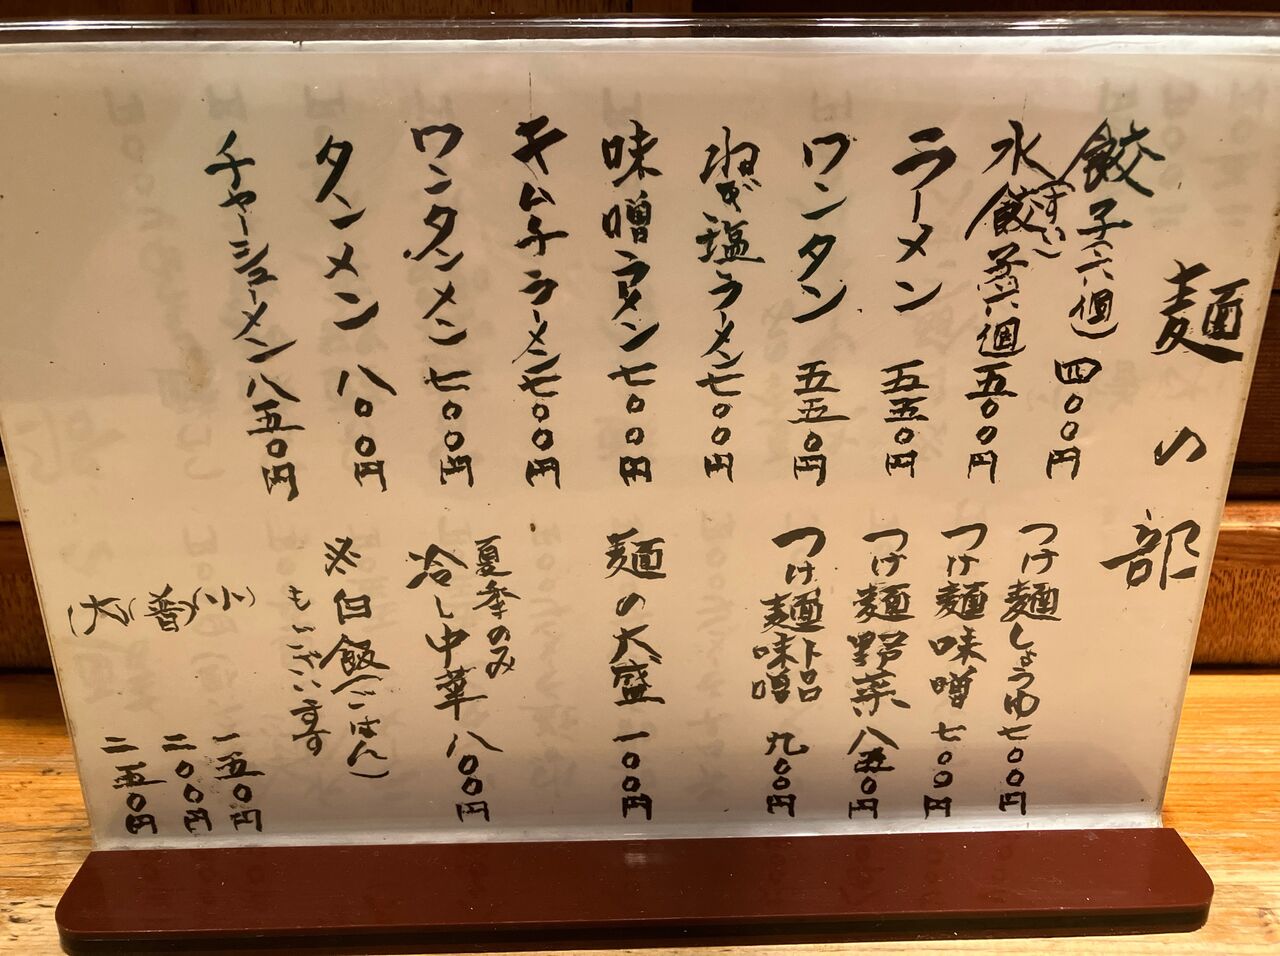 麺の部
餃子(六個) 四〇〇円
水餃子(すい)六個 五〇〇円
ラーメン 五五〇円
ワンタン 五五〇円
ねぎ塩ラーメン 七〇〇円
味噌ラーメン 七〇〇円
キムチラーメン 七〇〇円
ワンタンメン 七〇〇円
タンメン 八〇〇円
チャーシューメン 八五〇円
つけ麺しょうゆ 七〇〇円
つけ麺味噌 七〇〇円
つけ麺野菜 八五〇円
つけ麺味噌 九〇〇円
麺の大盛 一〇〇円
夏季のみ
冷し中華 八〇〇円
※白飯(ごはん)
もございます
(小) 一五〇円
(普) 二〇〇円
(大) 二五〇円